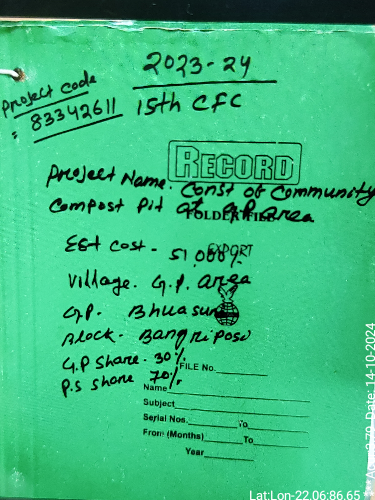 2023-24
Project code
: 83342611
15th CFC
RECORD
Project Name. Const of Community
Compost Pit at G.P area
FOLDER FILE
Est cost - 51,000/-
EXPORT
Village. G.P. area
G.P. Bhuasuni
Block. Bangriposi
G.P share. 30%
P.S share 70%
FILE No.
Name
Subject
Serial Nos. To
From (Months) To
Year
Date: 14-10-2024
Lat:Lon-22.06:86.65 **